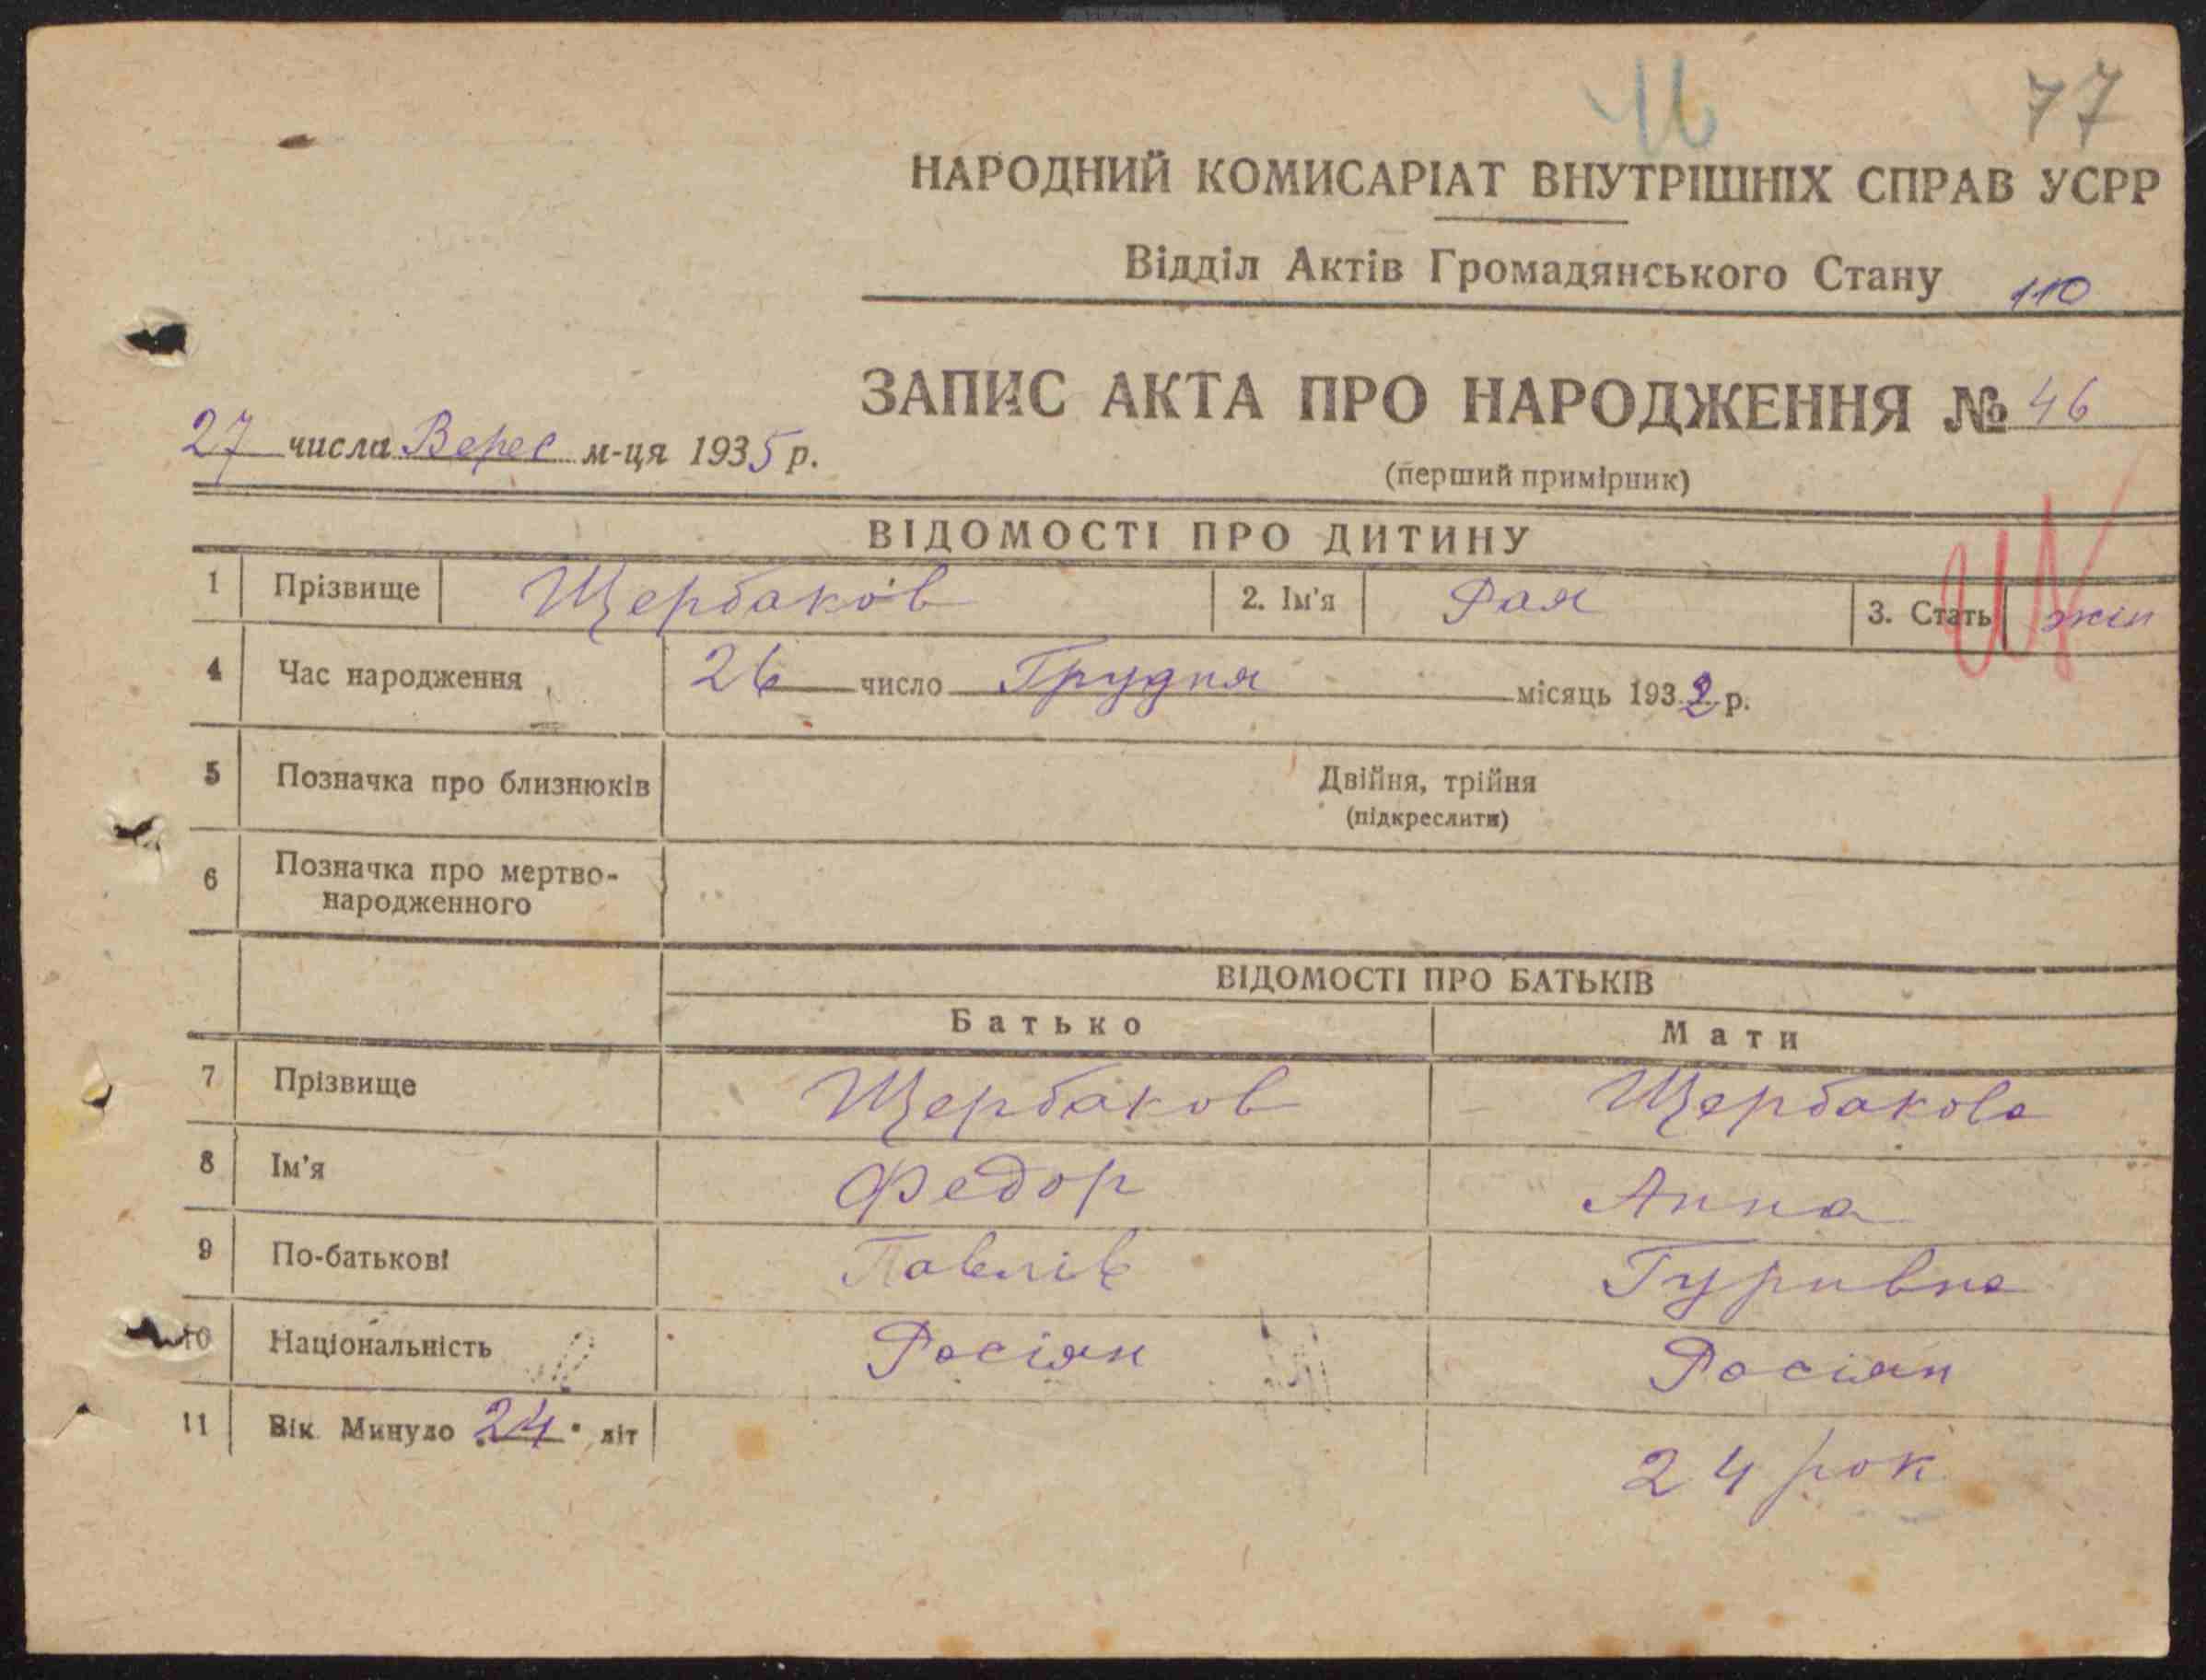 46 77
НАРОДНИЙ КОМИСАРІАТ ВНУТРІШНІХ СПРАВ УСРР
Відділ Актів Громадянського Стану 110
ЗАПИС АКТА ПРО НАРОДЖЕННЯ № 46
27 числа Верес м-ця 1935 р.
(перший примірник)
ВІДОМОСТІ ПРО ДИТИНУ
1 Прізвище Щербаков 2. Ім'я Рая 3. Стать жін
4 Час народження 26 число Грудня місяць 1932 р.
5 Позначка про близнюків Двійня, трійня
(підкреслити)
6 Позначка про мертво-
народженного
ВІДОМОСТІ ПРО БАТЬКІВ
Батько Мати
7 Прізвище Щербаков Щербакова
8 Ім'я Федор Анна
9 По-батькові Павлів Гуривна
10 Національність Росіян Росіян
11 Вік Минуло 24 літ
24 рок